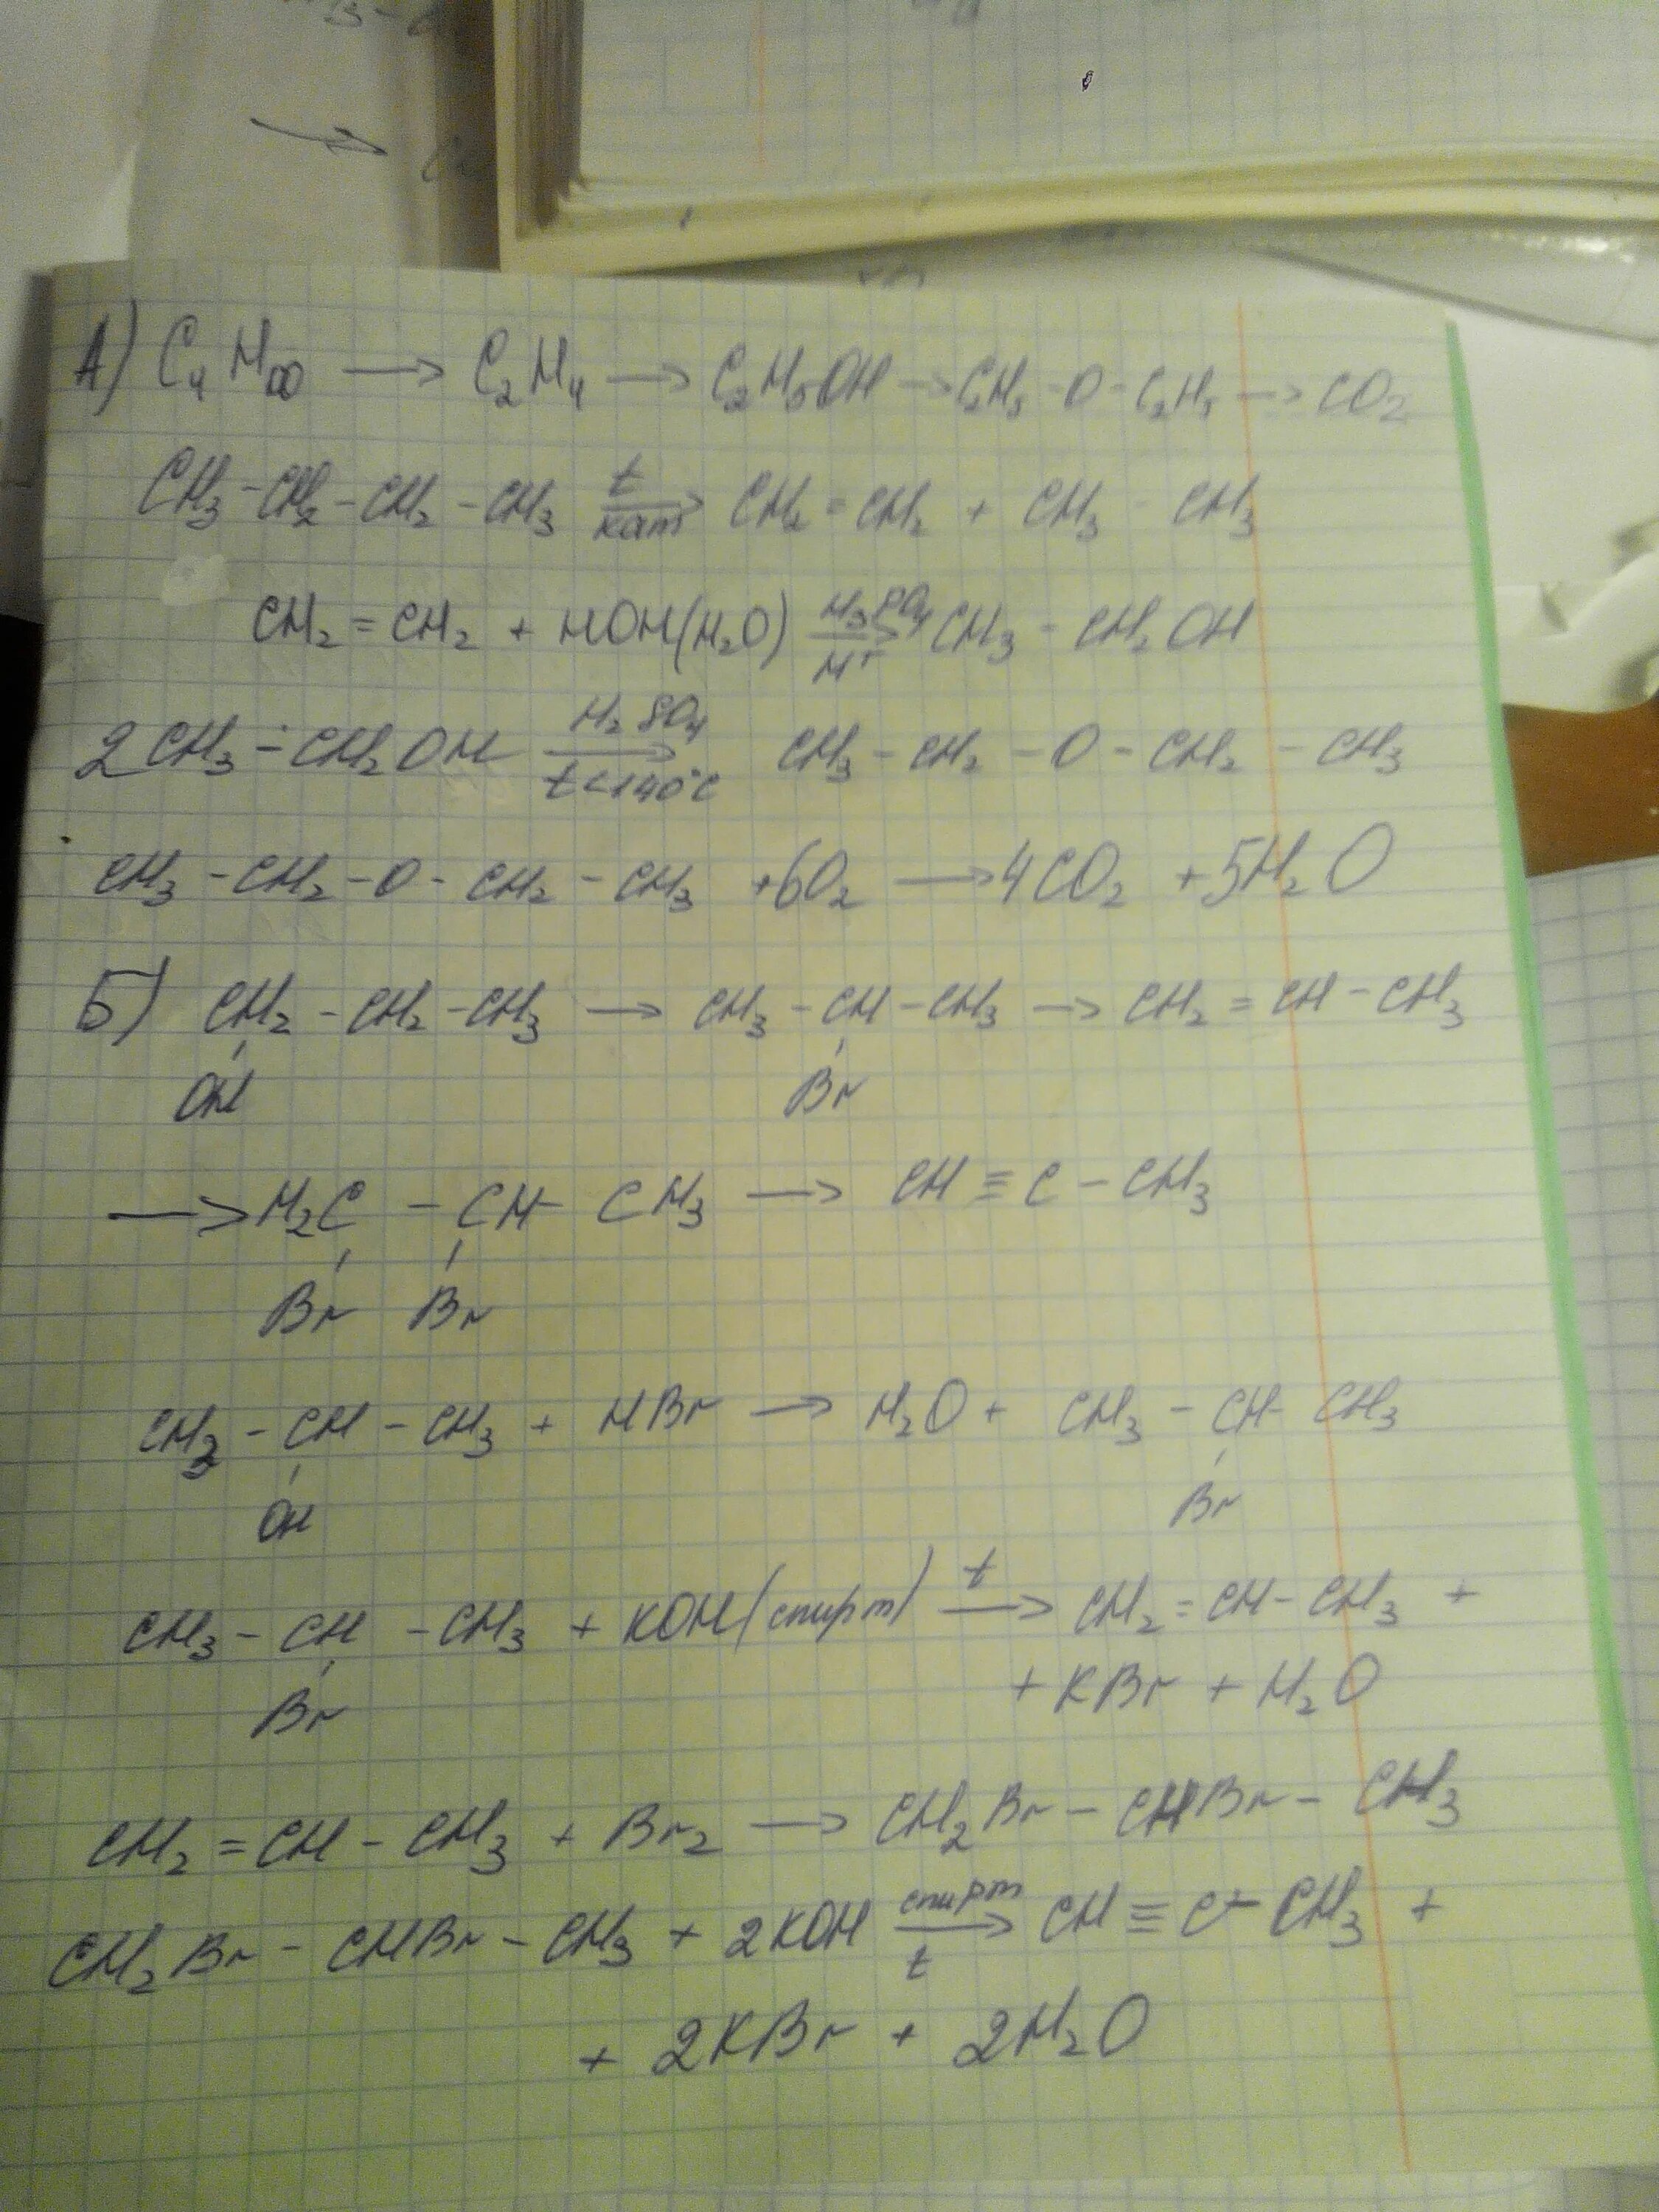 А) C₄H₁₀ → C₂H₄ → C₂H₅OH → C₂H₅-O-C₂H₅ → CO₂
CH₃-CH₂-CH₂-CH₃ t → кат CH₂=CH₂ + CH₃-CH₃
CH₂=CH₂ + HOH(H₂O) H₃PO₄ → H⁺ CH₃-CH₂OH
2CH₃-CH₂OH H₂SO₄ → t<140°C CH₃-CH₂-O-CH₂-CH₃
CH₃-CH₂-O-CH₂-CH₃ +6O₂ → 4CO₂ +5H₂O
Б) CH₂-CH₂-CH₃ → CH₃-CH-CH₃ → CH₂=CH-CH₃
OH Br
→ H₂C -CH- CH₃ → CH≡C-CH₃
Br Br
CH₃-CH-CH₃ + HBr → H₂O + CH₃-CH-CH₃
OH Br
CH₃-CH-CH₃ + KOH(спирт) t → CH₂=CH-CH₃ +
Br + KBr + H₂O
CH₂=CH-CH₃ + Br₂ → CH₂Br-CHBr-CH₃
CH₂Br-CHBr-CH₃ + 2KOH спирт → t CH≡C-CH₃ +
+ 2KBr + 2H₂O